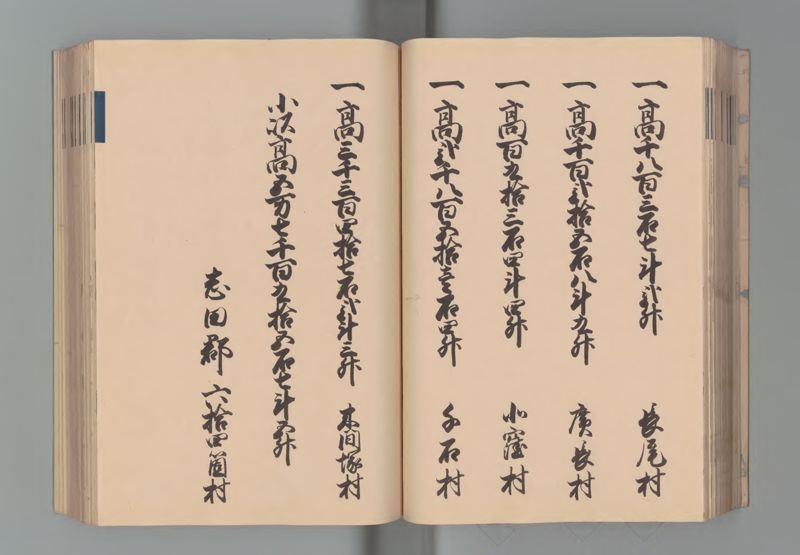 一高千八百三石七斗弐升 長尾村
一高千百弐拾五石八斗九升 廣長村
一高百九拾三石四斗四升 北窪村
一高弐千八百五拾壱石四升 千石村
一高三千三百四拾七石弐斗三升 木間塚村
小以高五万七千百九拾五石七斗五升
志田郡六拾四箇村